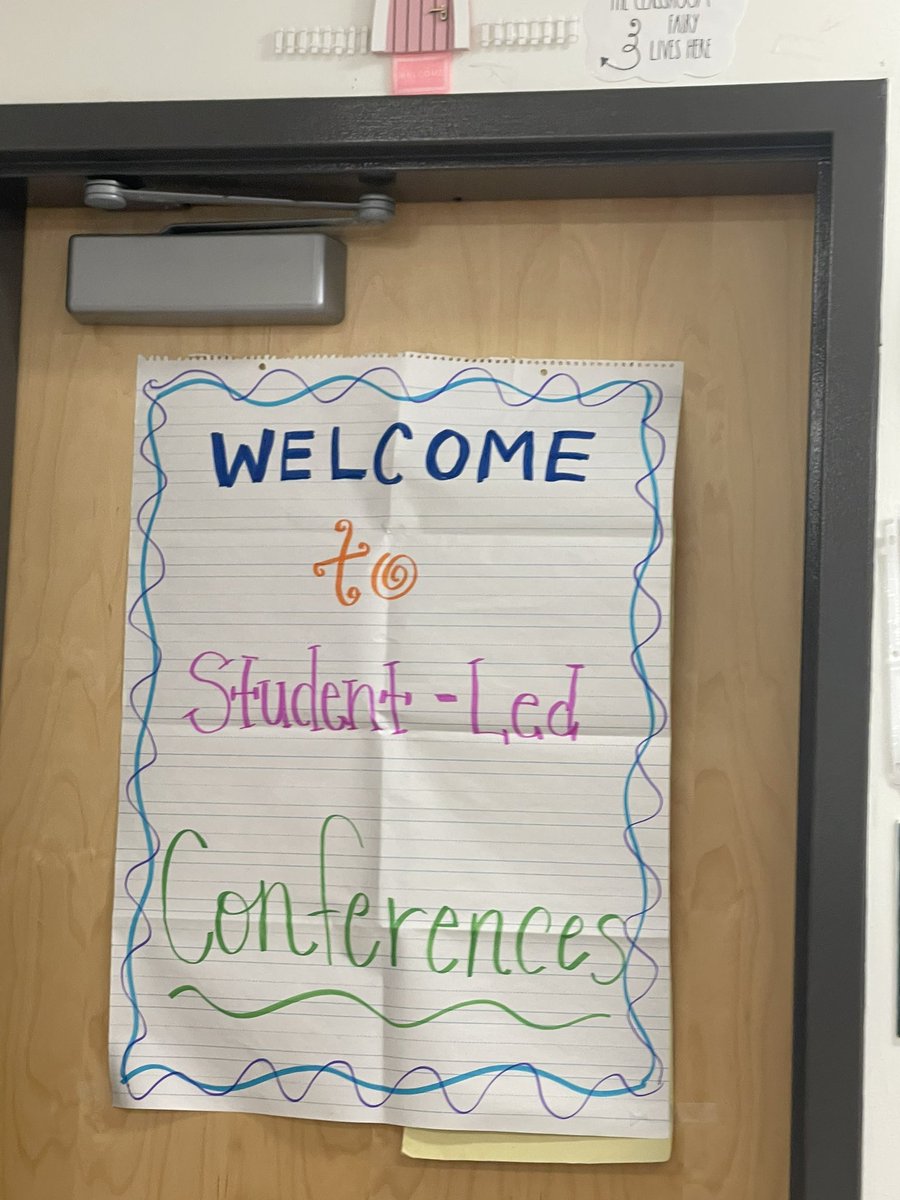 THE CLASSROOM
FAIRY
LIVES HERE
WELCOME
WELCOME
to
Student-Led
Conferences